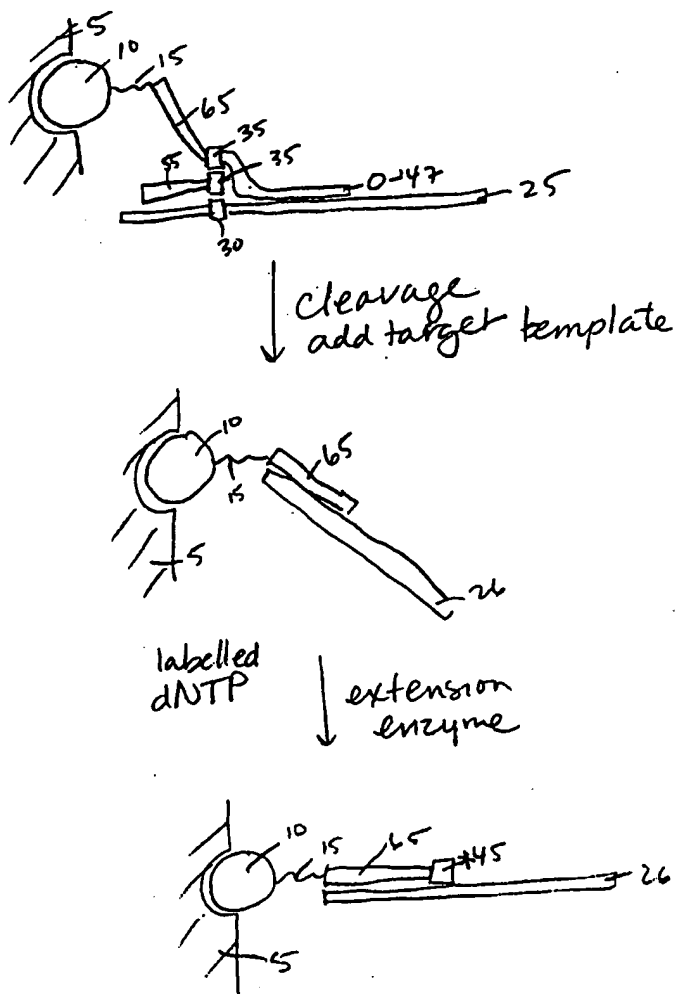 5
10
15
65
35
35
55
47
25
30
cleavage
add target template
10
65
15
5
26
labelled
dNTP
extension
enzyme
10
15
65
*45
26
5